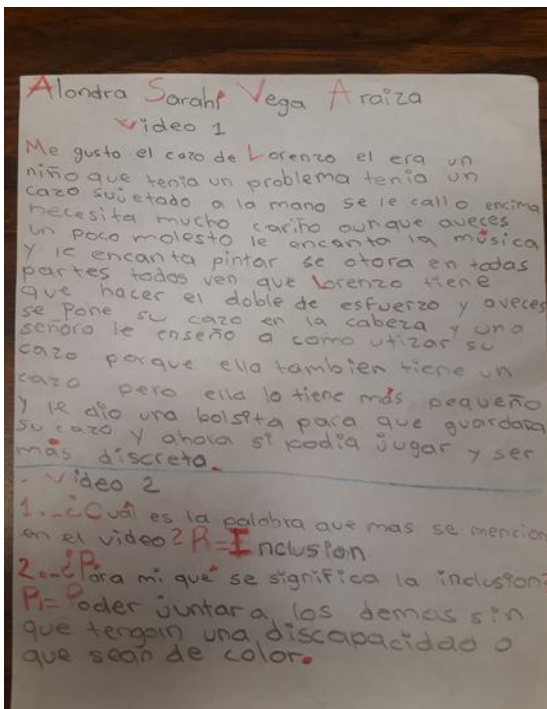 Alondra Sarahí Vega Araiza
Video 1
Me gusto el cazo de Lorenzo el era un
niño que tenia un problema tenia un
cazo sujetado a la mano se le callo encima
necesita mucho cariño aunque aveces
un poco molesto le encanta la música
y le encanta pintar se otora en todas
partes todos ven que Lorenzo tiene
que hacer el doble de esfuerzo y aveces
se pone su cazo en la cabeza y una
señora le enseño a como utizar su
cazo porque ella tambien tiene un
cazo pero ella lo tiene más pequeño
y le dio una bolsita para que guardara
su cazo y ahora si podia jugar y ser
más discreta.
. Video 2
1.-¿Cuál es la palabra que mas se mencion
en el video? R=Inclusion
2.-¿Para mi qué se significa la inclusion?
R= Poder juntar a los demas sin
que tengan una discapacidad o
que sean de color.